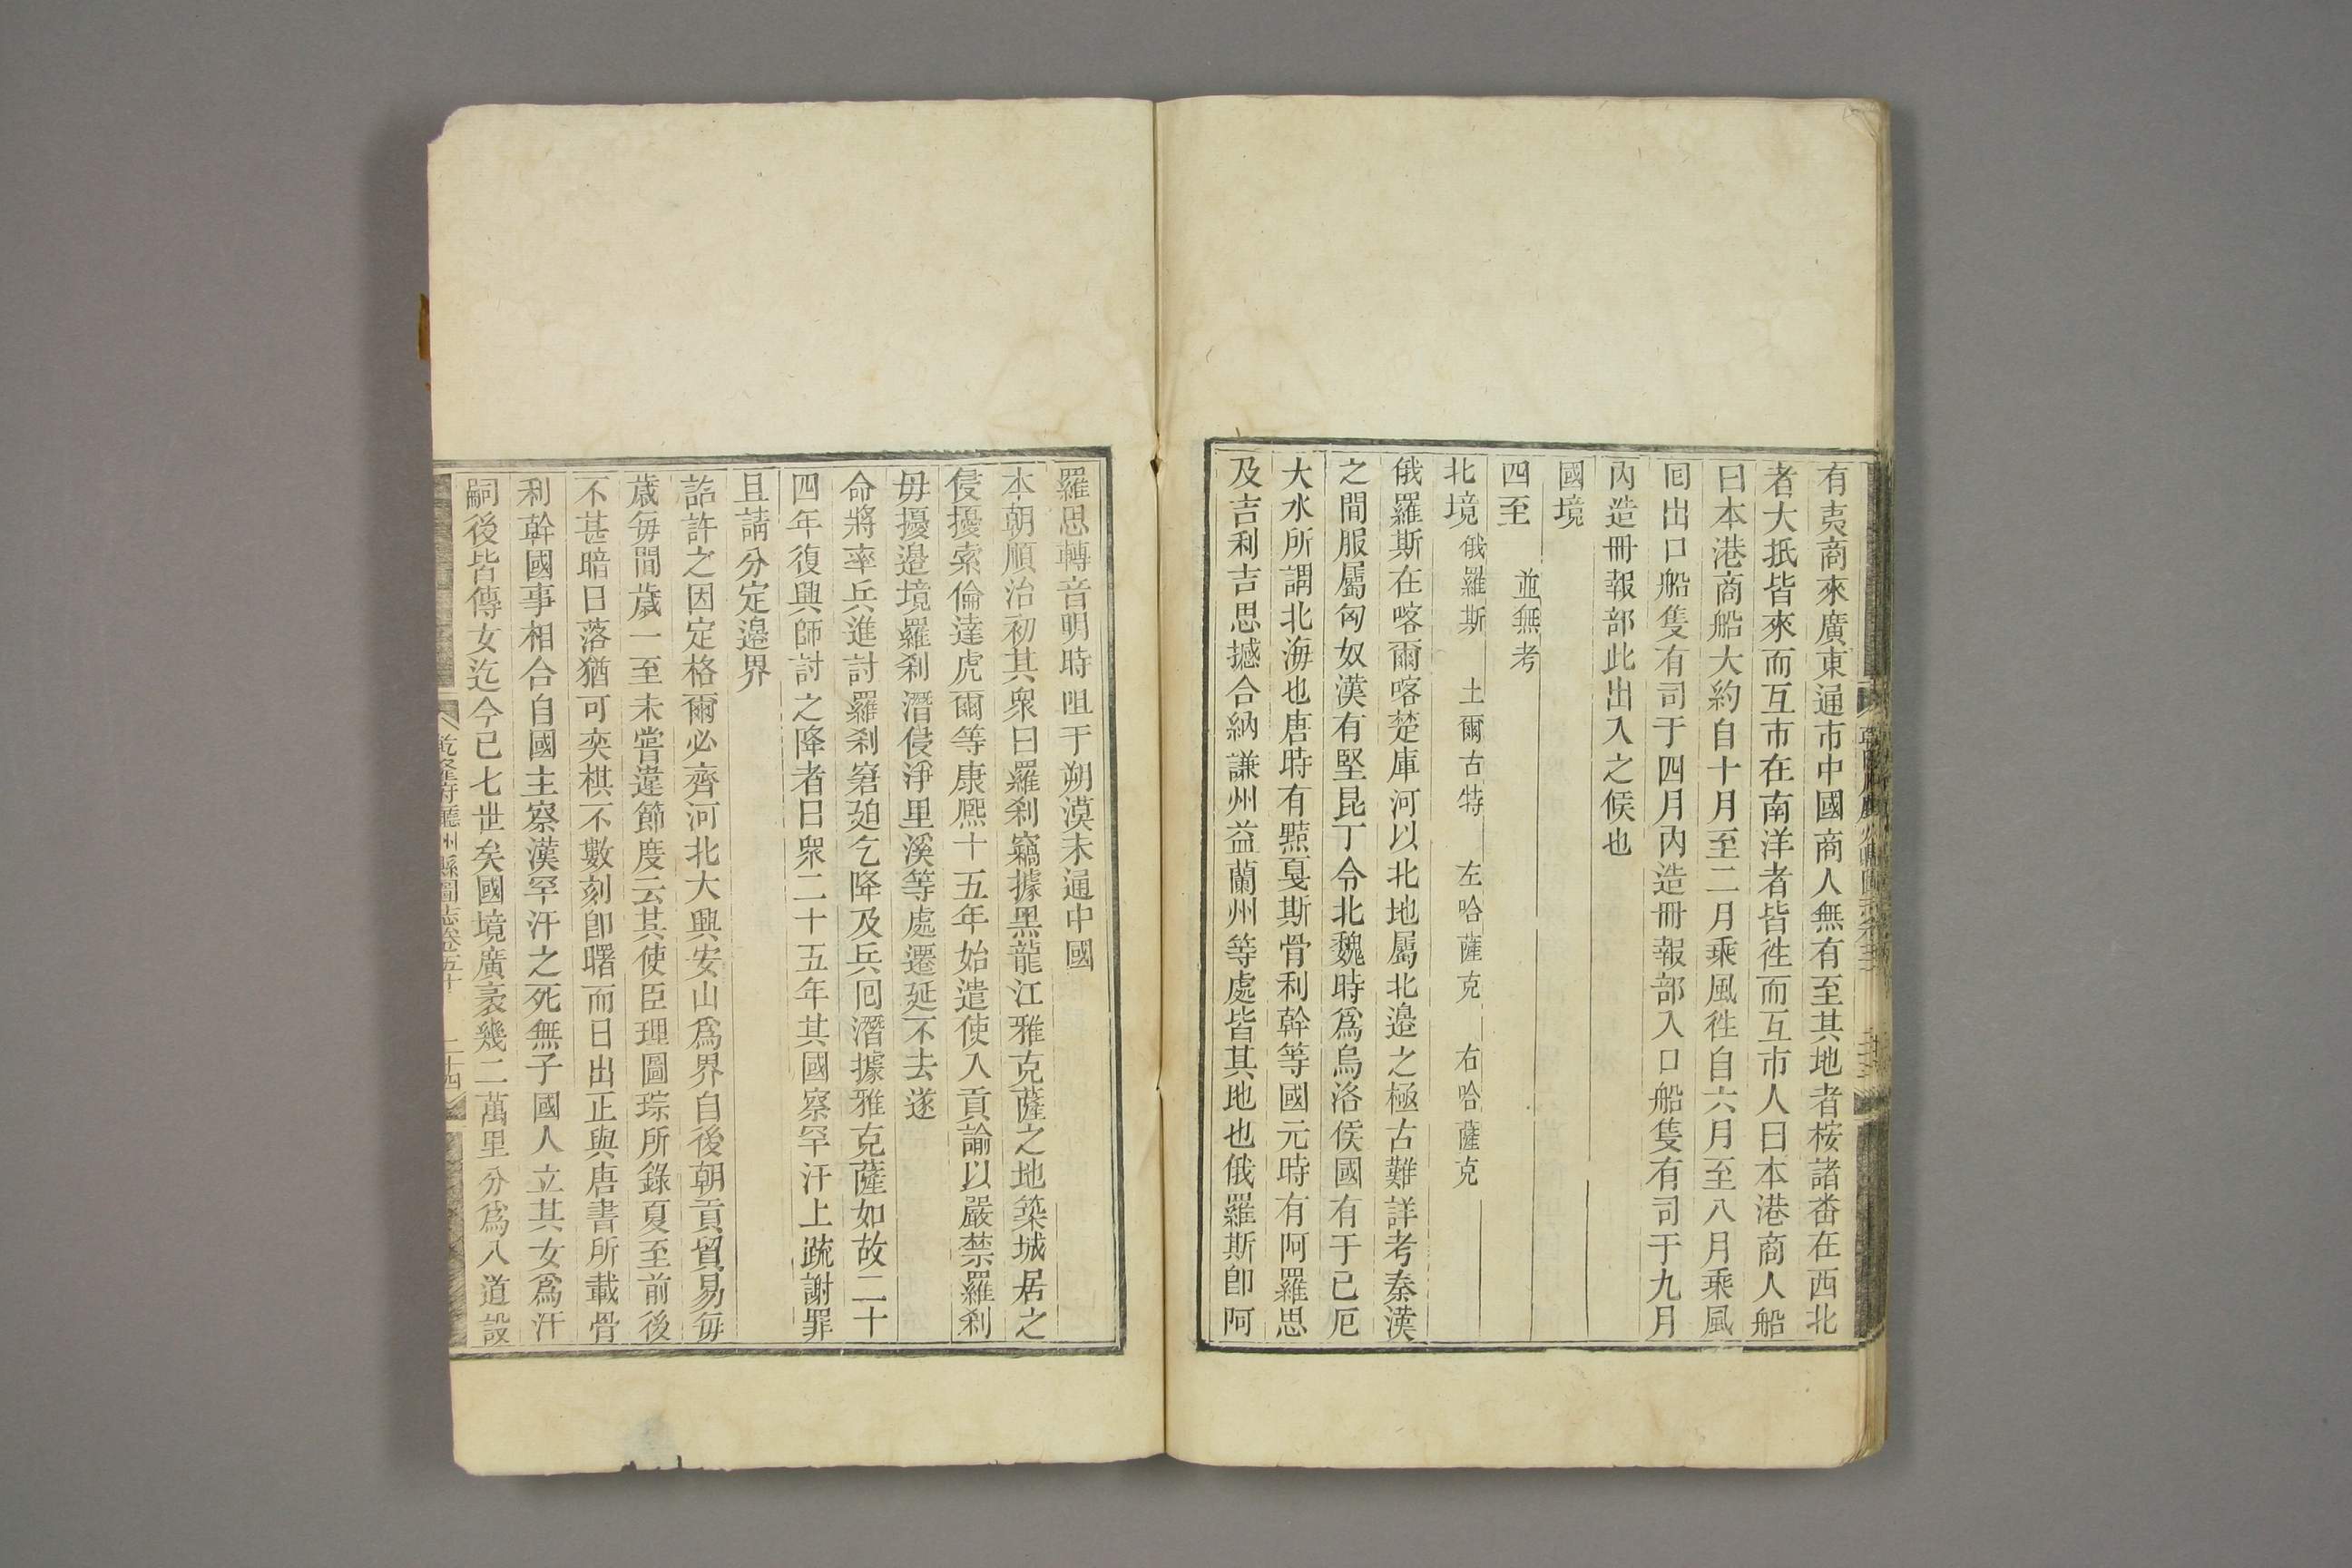 有夷商來廣東通市中國商人無有至其地者桉諸畨在西北
者大抵皆來而互市在南洋者皆徃而互市人曰本港商人船
曰本港商船大約自十月至二月乘風徃自六月至八月乘風
囘出口船隻有司于四月內造冊報部入口船隻有司于九月
內造冊報部此出入之候也
國境
四至　並無考
北境　俄羅斯　土爾古特　左哈薩克　右哈薩克
俄羅斯在喀爾喀楚庫河以北地屬北邉之極古難詳考秦漢
之間服屬匈奴漢有堅昆丁令北魏時爲烏洛侯國有于巳厄
大水所謂北海也唐時有黠戛斯骨利幹等國元時有阿羅思
及吉利吉思撼合納謙州益蘭州等處皆其地也俄羅斯卽阿
羅思轉音明時阻于朔漠未通中國
本朝順治初其衆曰羅刹竊據黑龍江雅克薩之地築城居之
侵擾索倫達虎爾等康熙十五年始遣使入貢諭以嚴禁羅刹
毋擾邉境羅刹潛侵淨里溪等處遷延不去遂
命將率兵進討羅刹窘廹乞降及兵囘潛據雅克薩如故二十
四年復興師討之降者日衆二十五年其國察罕汗上疏謝罪
且請分定邉界
詔許之因定格爾必齊河北大興安山爲界自後朝貢貿易每
歲每間歲一至未嘗違節度云其使臣理圖琮所錄夏至前後
不甚暗日落猶可奕棋不數刻卽曙而日出正與唐書所載骨
利幹國事相合自國主察漢罕汗之死無子國人立其女爲汗
嗣後皆傳女迄今已七世矣國境廣袤幾二萬里分爲八道設
乾隆府廳州縣圖志卷五十　二十四